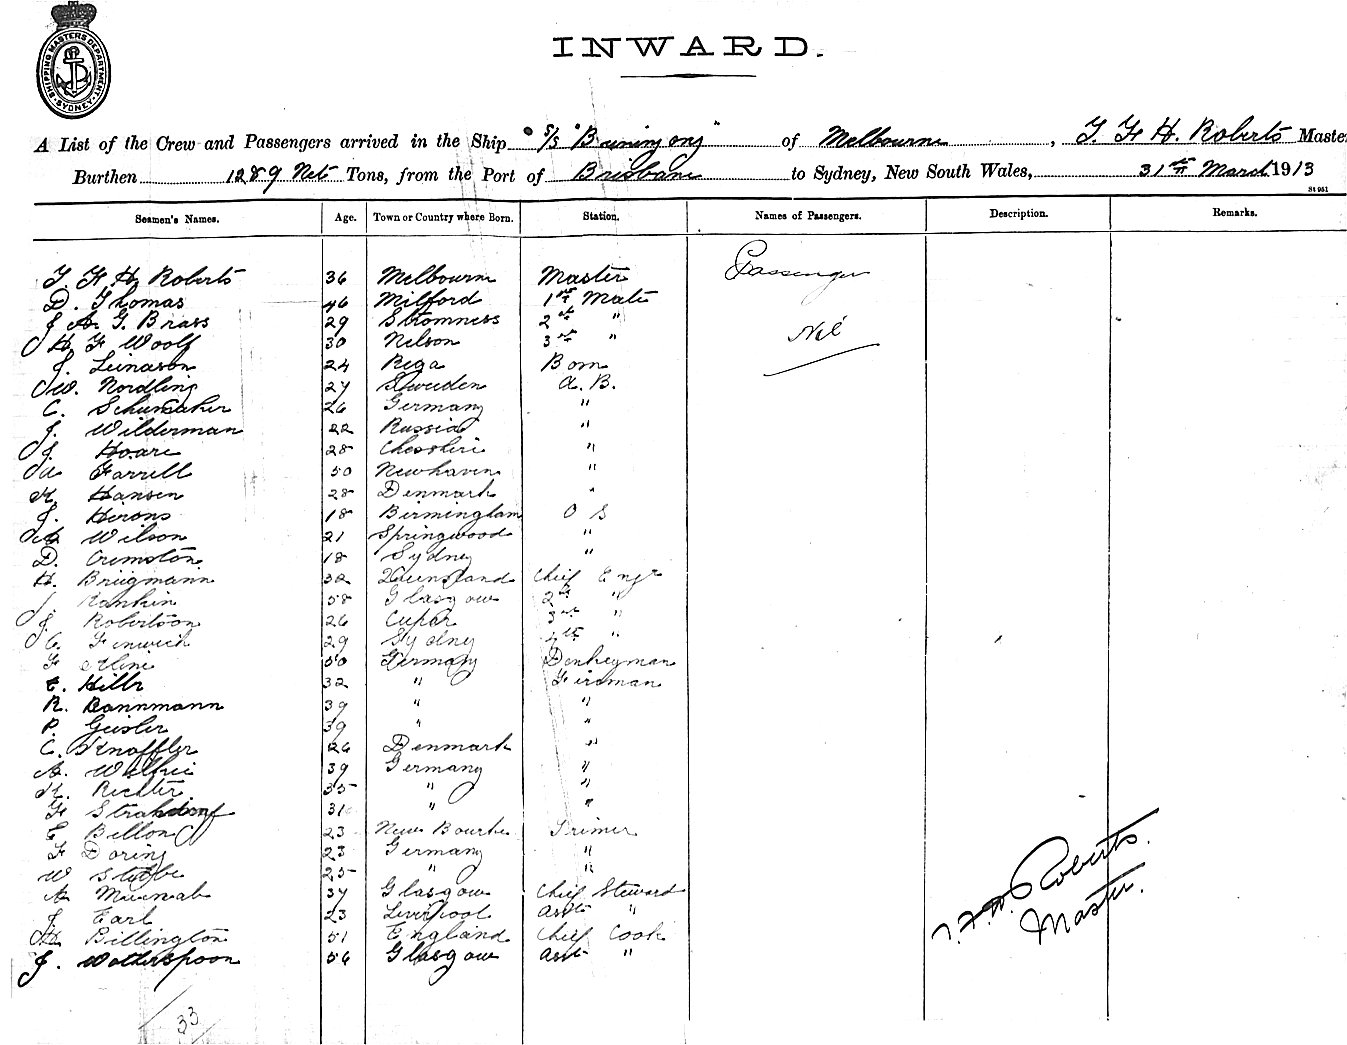 SHIPPING MASTERS DEPARTMENT
SYDNEY
INWARD.
A List of the Crew and Passengers arrived in the Ship S/S "Buninyong" of Melbourne, T. F. H. Roberts Master
Burthen 1289 Net Tons, from the Port of Brisbane to Sydney, New South Wales, 31st March 1913
St 951
Seamen's Names. Age. Town or Country where Born. Station. Names of Passengers. Description. Remarks.
T. F. H. Roberts 36 Melbourne Master Passenger
D. Thomas 46 Milford 1st Mate
J A. G. Brass 29 Stromness 2nd "
H F Woolf 30 Nelson 3rd " Nil
J. Leinason 24 Riga Bosn
W. Nordling 27 Sweden A. B.
C. Schumaker 26 Germany "
J. Wilderman 22 Russia "
J. Hoare 28 Chesshire "
Farrell 50 Newhaven "
Hansen 28 Denmark "
J. Hirons 18 Birmingham O S
Wilson 21 Springwood "
D. Ormston 18 Sydney "
H. Brügmann 32 Queensland Chief Engr
J. Rankin 58 Glasgow 2nd "
J. Robertson 26 Cupar 3rd "
C. Fenwick 29 Sydney 4th "
F 50 Germany Donkeyman
E. Hille 32 " Fireman
R. Bannmann 39 " "
P. Geisler 39 " "
C. Knoffler 26 Denmark "
A. 39 Germany "
Richter 35 " "
F 31 " "
Billon 23 New Bourke Trimer
F Doring 23 Germany "
W Stubbe 25 " "
A 37 Glasgow Chief Steward
J Earl 23 Liverpool Asst "
Billington 51 England Chief Cook
J. Wotherspoon 56 Glasgow Asst "
T. F. H. Roberts.
Master.
33